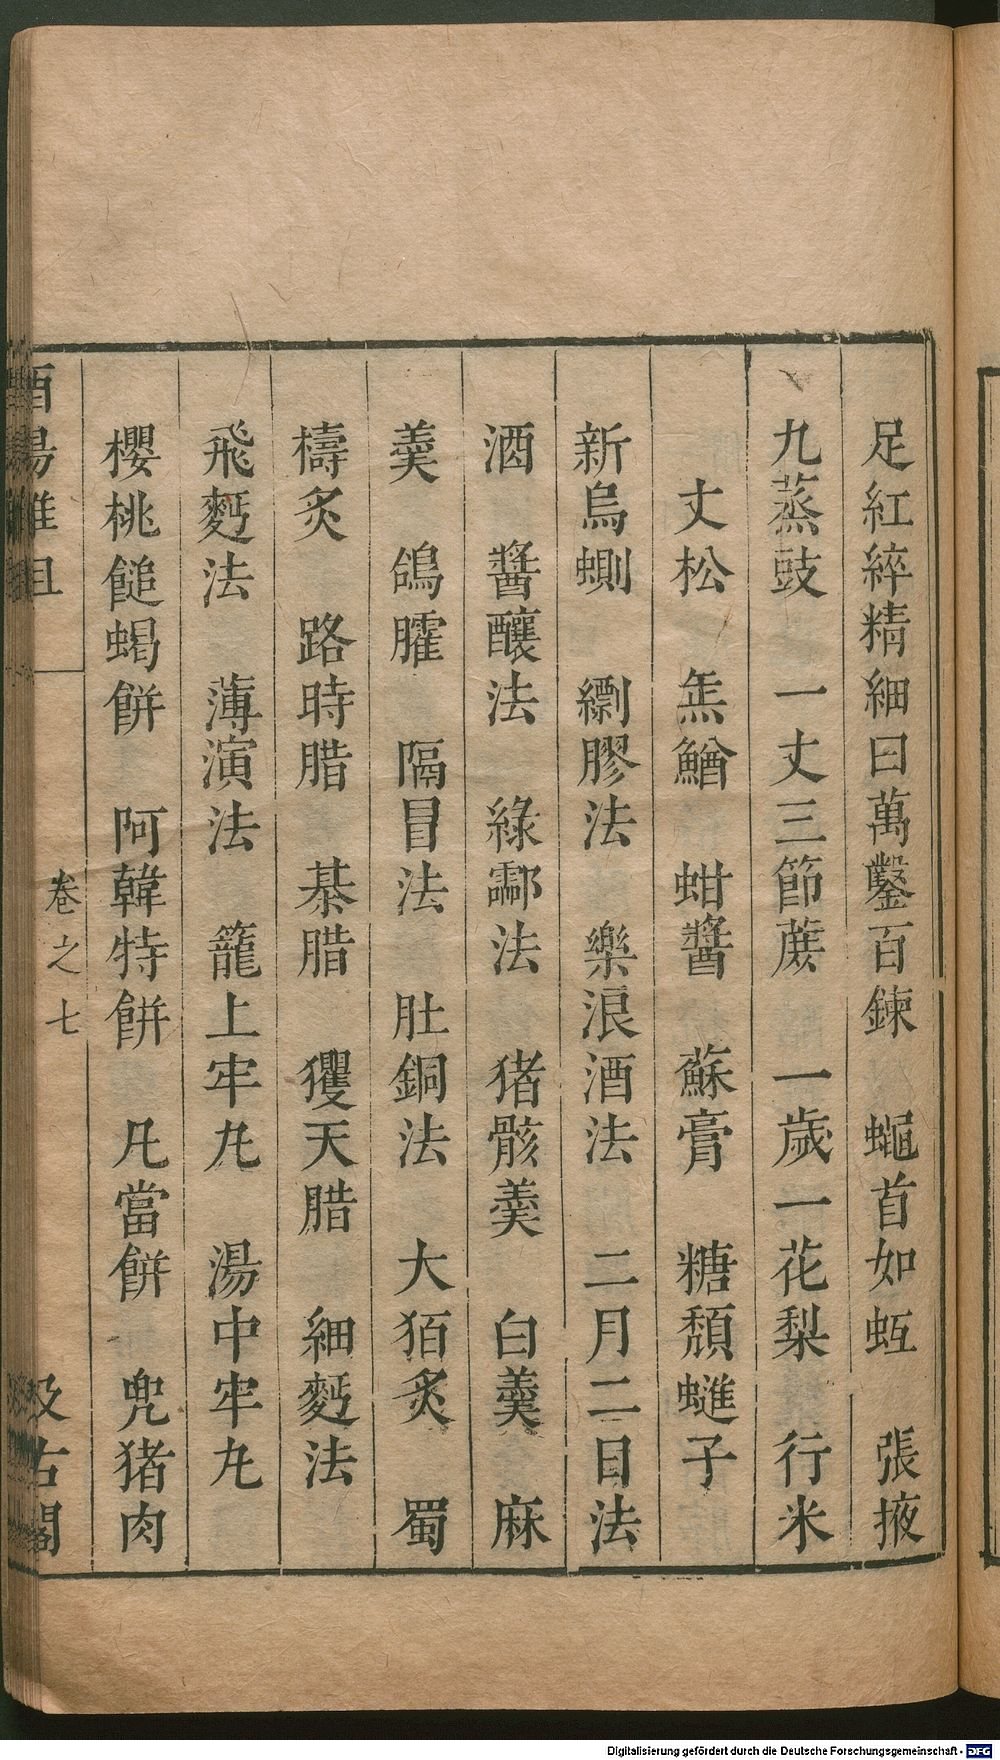 足紅綷精細曰萬鑿百鍊　蠅首如蚳　張掖
九蒸豉　一丈三節蔗　一歲一花梨　行米
丈松　䱹　蚶醬　蘇膏　糖頹䗯子
新烏蝍　縹膠法　樂浪酒法　二月二日法
酒　醬釀法　綠酃法　猪骸羹　白羹　麻
羹　鴿臛　隔冒法　肚銅法　大狛炙　蜀
檮炙　路時腊　棊腊　玃天腊　細麪法
飛麪法　薄演法　籠上牢九　湯中牢九
櫻桃䭔蝎餅　阿韓特餅　凡當餅　兜猪肉
酉陽雜俎　卷之七　汲古閣
Digitalisierung gefördert durch die Deutsche Forschungsgemeinschaft - DFG